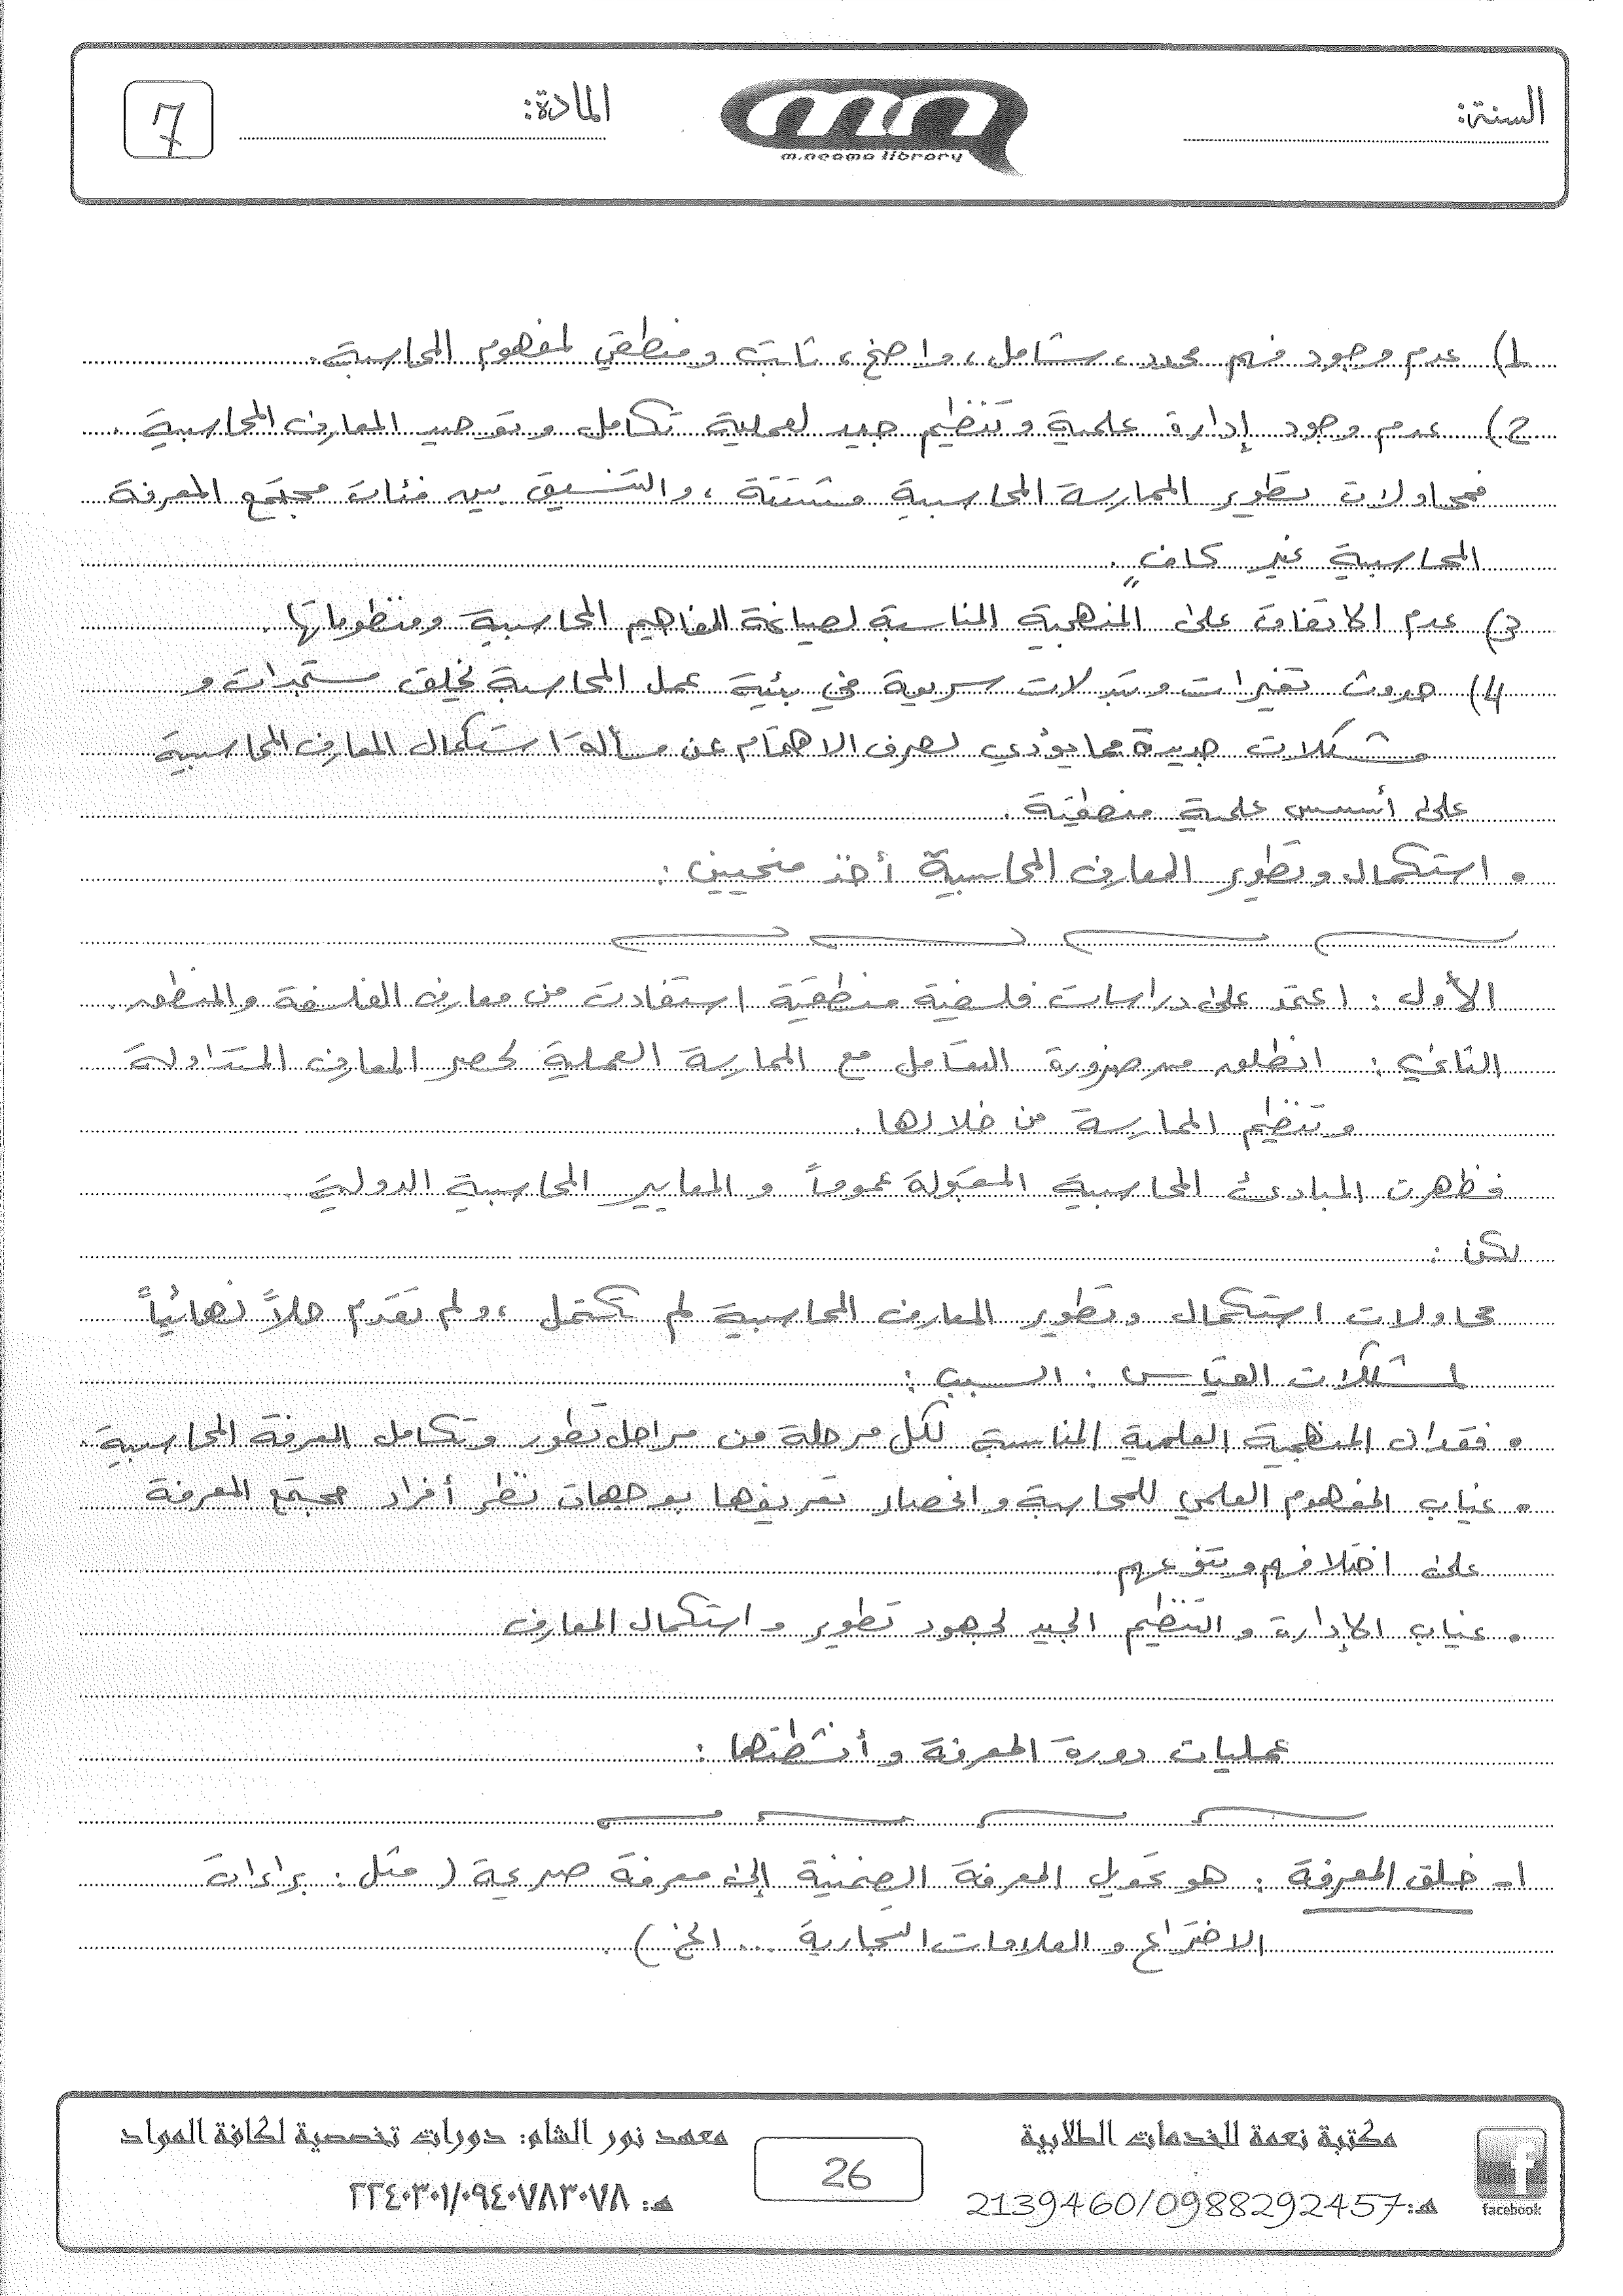 السنة:
m.neama library
المادة:
7
1) عدم وجود فهم محدد، شامل، واضح، ثابت ومنطقي لمفهوم المحاسبة.
2) عدم وجود إدارة علمية وتنظيم جيد لعملية تكامل وتوحيد المعارف المحاسبية.
فمحاولات تطوير الممارسة المحاسبية مشتتة، والتنسيق بين فئات مجتمع المعرفة
المحاسبية غير كافٍ.
3) عدم الاتفاق على المنهجية المناسبة لصياغة المفاهيم المحاسبية ومنظوماتها.
4) حدوث تغيرات وتبدلات سريعة في بيئة عمل المحاسبة تخلق مستجدات و
مشكلات جديدة مما يؤدي لصرف الاهتمام عن مسألة استكمال المعارف المحاسبية
على أسس علمية منطقية.
• استكمال وتطوير المعارف المحاسبية أخذ منحيين:
الأول: اعتمد على دراسات فلسفية منطقية استفادت من معارف الفلسفة والمنطق.
الثاني: انطلق من ضرورة التعامل مع الممارسة العملية لحصر المعارف المتداولة
وتنظيم الممارسة من خلالها.
فظهرت المبادئ المحاسبية المقبولة عموماً و المعايير المحاسبية الدولية.
لكن:
محاولات استكمال وتطوير المعارف المحاسبية لم تكتمل، ولم تقدم حلاً نهائياً
لمشكلات القياس: السبب:
• فقدان المنهجية العلمية المناسبة لكل مرحلة من مراحل تطور وتكامل المعرفة المحاسبية.
• غياب المفهوم العلمي للمحاسبة وانحصار تعريفها بوجهات نظر أفراد مجتمع المعرفة
على اختلافهم وتنوعهم.
• غياب الإدارة و التنظيم الجيد لجهود تطوير و استكمال المعارف
عمليات دورة المعرفة و أنشطتها:
1- خلق المعرفة: هو تحويل المعرفة الضمنية إلى معرفة صريحة (مثل: براءات
الاختراع و العلامات التجارية ... الخ).
مكتبة نعمة للخدمات الطلابية
هـ: 2139460/0988292457
facebook
26
معهد نور الشام: دورات تخصصية لكافة المواد
هـ: ٢٢٤٠٣٠١/٠٩٤٠٧٨٣٠٧٨